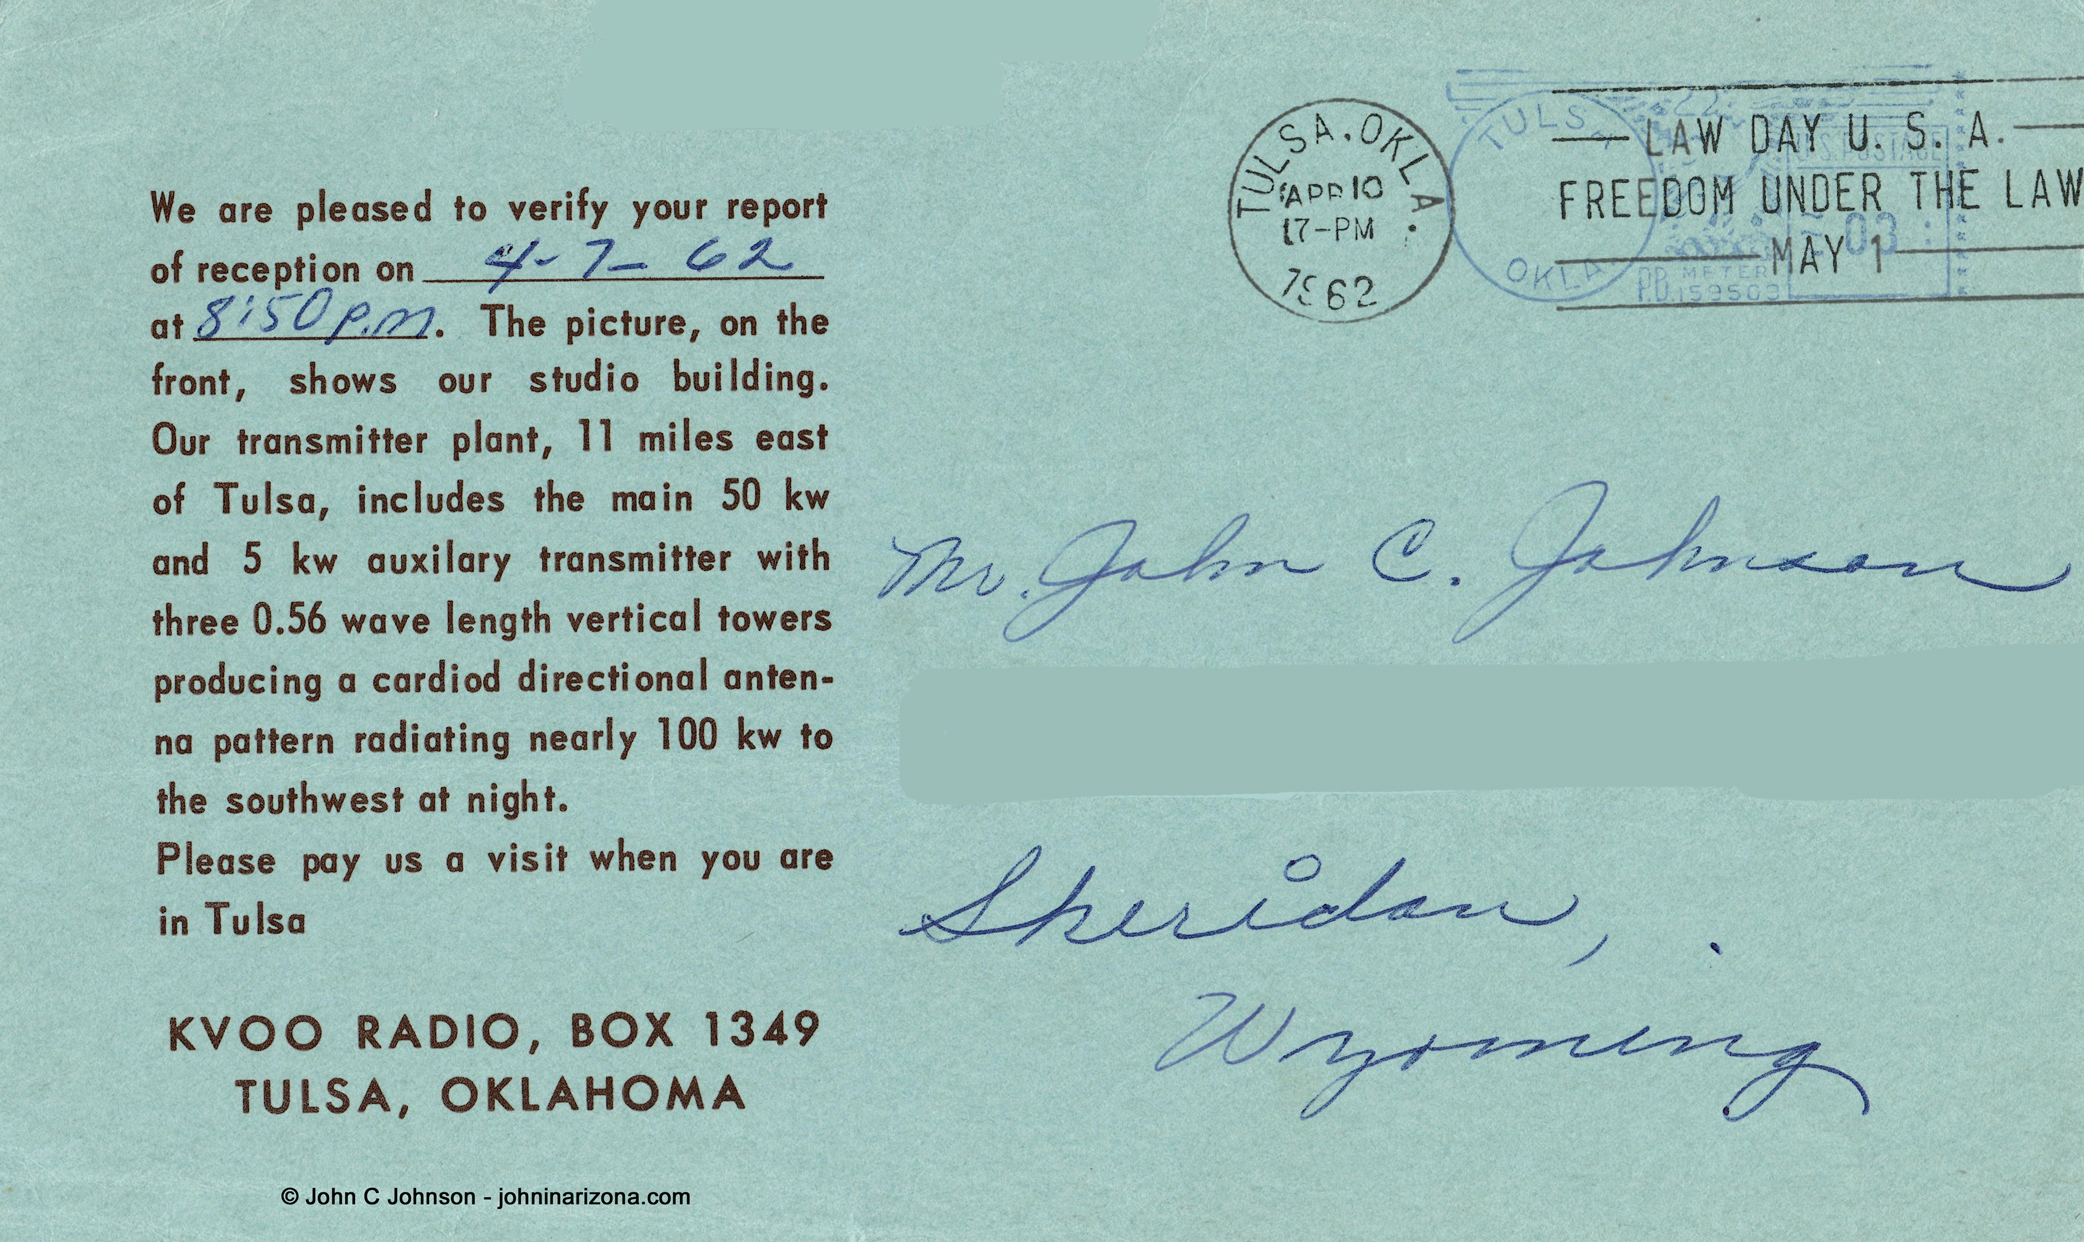 We are pleased to verify your report
of reception on 4-7-62
at 8:50 p.m. The picture, on the
front, shows our studio building.
Our transmitter plant, 11 miles east
of Tulsa, includes the main 50 kw
and 5 kw auxilary transmitter with
three 0.56 wave length vertical towers
producing a cardiod directional anten-
na pattern radiating nearly 100 kw to
the southwest at night.
Please pay us a visit when you are
in Tulsa
KVOO RADIO, BOX 1349
TULSA, OKLAHOMA
© John C Johnson - johninarizona.com
TULSA, OKLA.
APR 10
7-PM
1962
TULSA
OKLA
LAW DAY U. S. A.
FREEDOM UNDER THE LAW
MAY 1
U.S. POSTAGE
03
P.B. METER
159503
Mr. John C. Johnson
Sheridan,
Wyoming